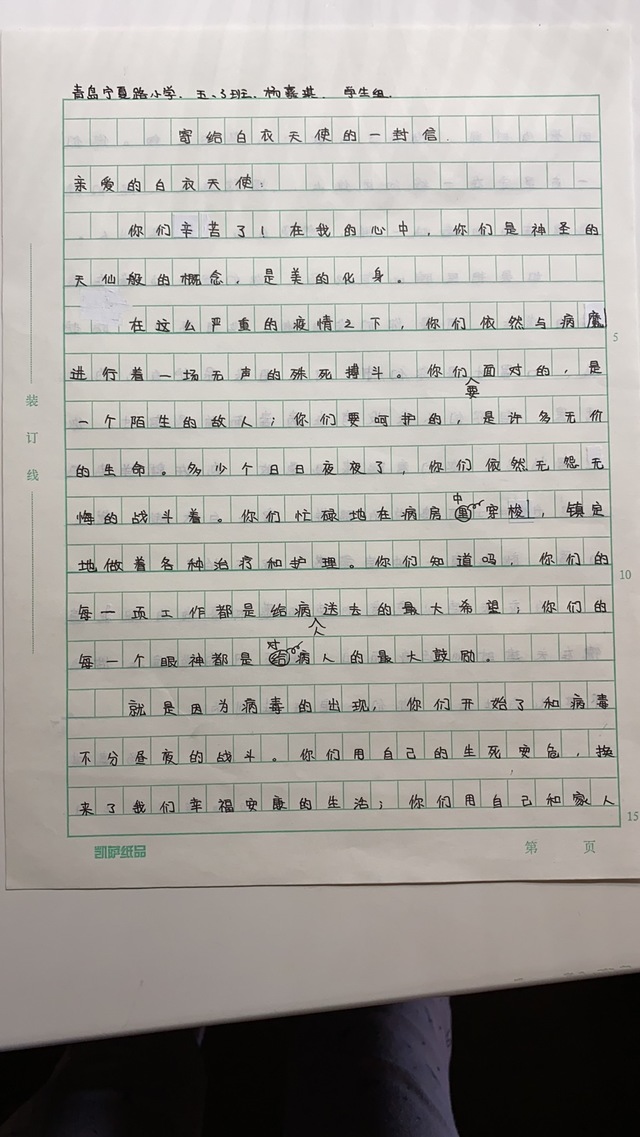 青岛宁夏路小学、五、3班、杨嘉琪、学生组.
寄给白衣天使的一封信.
亲爱的白衣天使：
你们辛苦了！在我的心中，你们是神圣的
天仙般的概念，是美的化身。
在这么严重的疫情之下，你们依然与病魔
5
进行着一场无声的殊死搏斗。你们要面对的，是
一个陌生的敌人；你们要呵护的，是许多无价
的生命。多少个日日夜夜了，你们依然无怨无
悔的战斗着。你们忙碌地在病房中穿梭，镇定
地做着各种治疗和护理。你们知道吗，你们的
10
每一项工作都是给病人送去的最大希望；你们的
每一个眼神都是对病人的最大鼓励。
就是因为病毒的出现，你们开始了和病毒
不分昼夜的战斗。你们用自己的生死安危，换
来了我们幸福安康的生活；你们用自己和家人
15
装订线
凯萨纸品
第 页